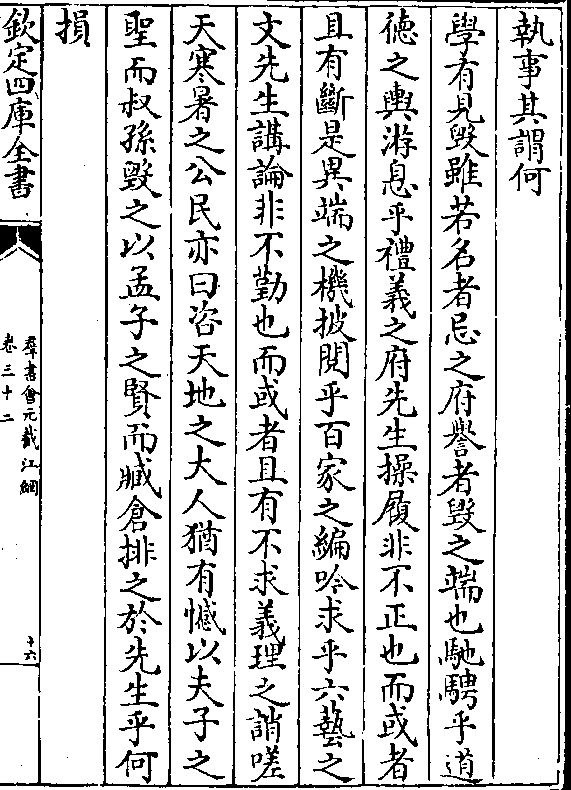 執事其謂何
學有見毀雖若名者忌之府譽者毀之端也馳騁乎道
徳之輿游息乎禮義之府先生操履非不正也而或者
且有斷是異端之機披閱乎百家之編吟求乎六藝之
文先生講論非不勤也而或者且有不求義理之誚嗟
天寒暑之公民亦曰咨天地之大人猶有憾以夫子之
聖而叔孫毀之以孟子之賢而臧倉排之於先生乎何
損
欽定四庫全書
羣書會元截江網
卷三十二
十六